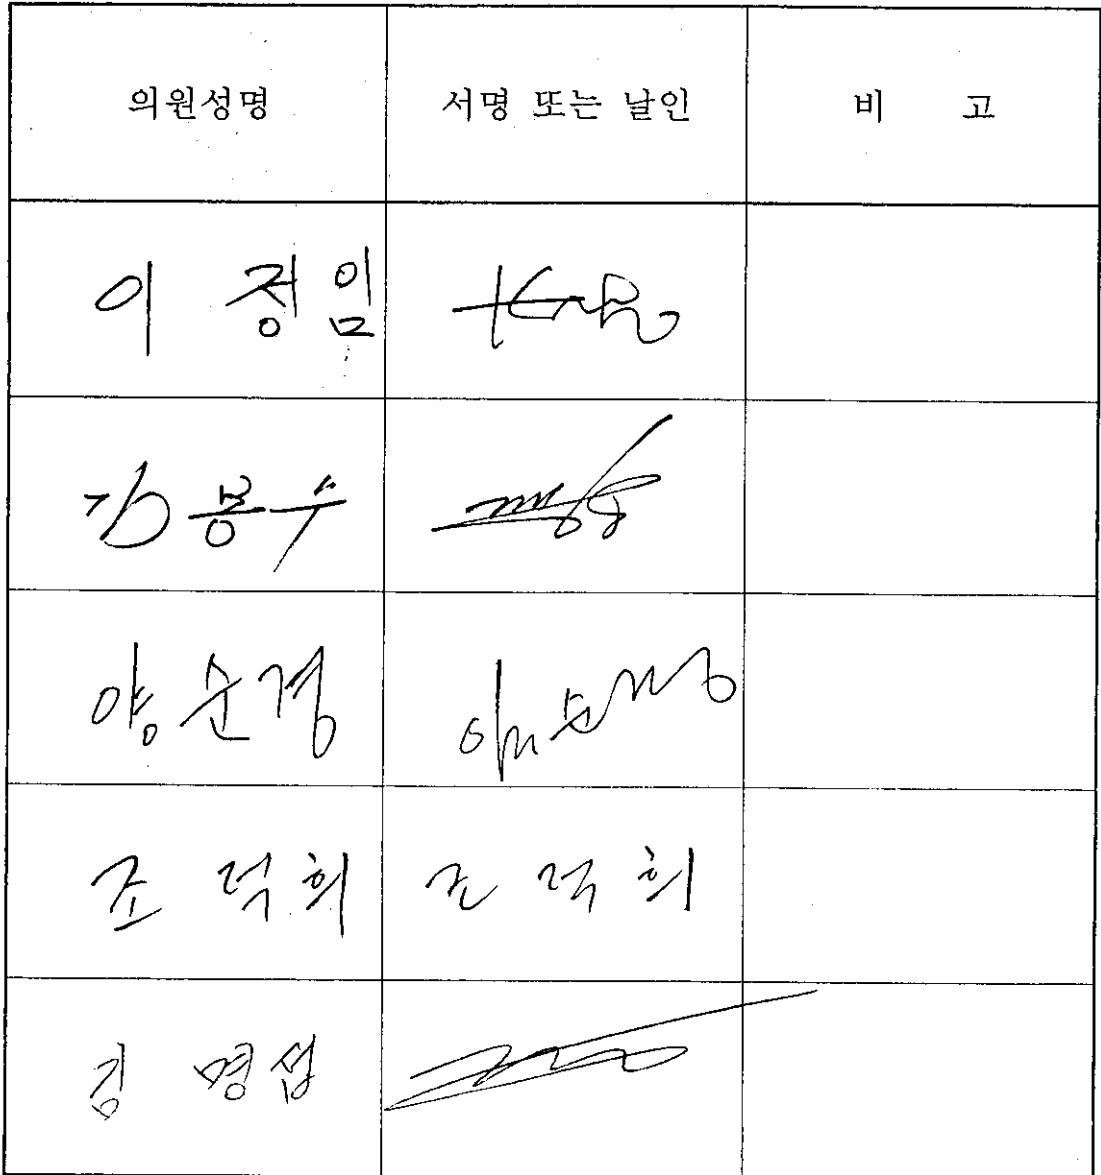 의원성명 서명 또는 날인 비 고
이 정임
김봉수
양순경
조덕희 조덕희
김 명섭